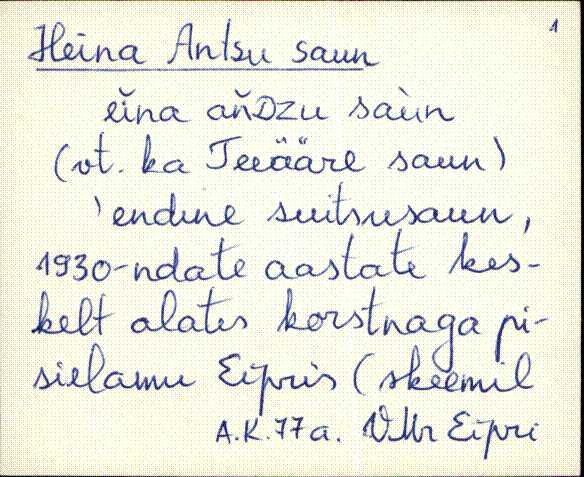 1
Heina Antsu saun
eĭna ańDzu saùn
(vt. ka Teeääre saun)
'endine suitsusaun,
1930-ndate aastate kes-
kelt alates korstnaga pi-
sielamu Eipris (skeemil
A.K.77a. VMr Eipri